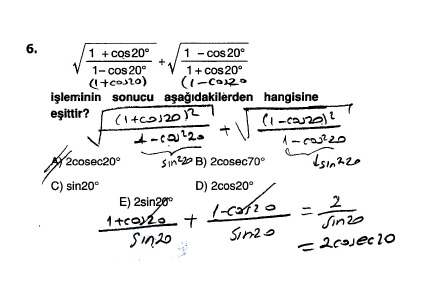 6. √(1 + cos20°)/(1 - cos20°) + √(1 - cos20°)/(1 + cos20°)
(1+cos20) (1-cos20
işleminin sonucu aşağıdakilerden hangisine
eşittir? √(1+cos20)²/1-cos²20 + √(1-cos20)²/1-cos²20
sin²20 ↓sin²20
A) 2cosec20° B) 2cosec70°
C) sin20° D) 2cos20°
E) 2sin20°
1+cos20/sin20 + 1-cos20/sin20 = 2/sin20
= 2cosec20